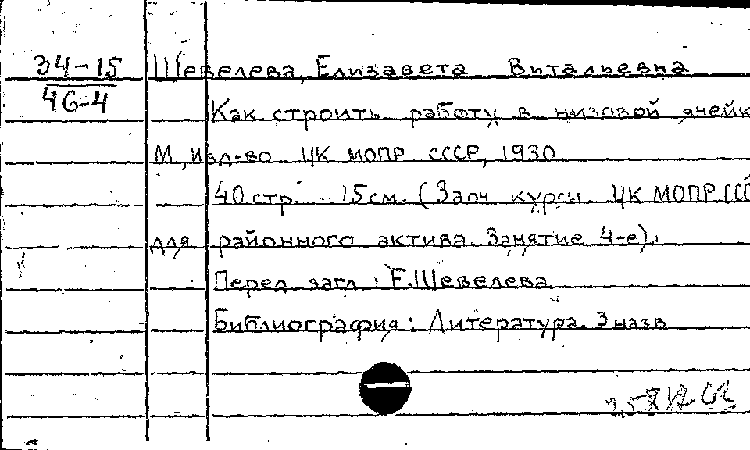 34-15
46-4
Шевелева, Елизавета Витальевна
Как строить работу в низовой ячейк
М., Изд-во ЦК МОПР СССР, 1930
40 стр. 15 см. (Заоч. курсы ЦК МОПР ССС
для районного актива. Занятие 4-е).
Перед загл.: Е.Шевелева
Библиография: Литература. 3 назв